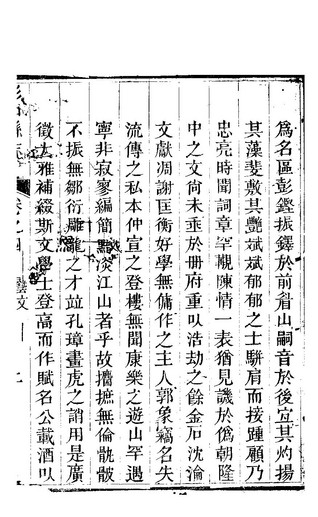 爲名區彭鏗振鐸於前眉山嗣音於後宜其灼揚
其藻斐敷其艷斌斌郁郁之士駢肩而接踵顧乃
忠亮時聞詞章罕覯陳情一表猶見譏於僞朝隆
中之文尚未垂於册府重以浩劫之餘金石沈淪
文獻凋謝匡衡好學無傭作之主人郭象竊名失
流傳之私本仲宣之登樓無聞康樂之遊山罕遇
寕非寂寥編簡黯淡江山者乎故擣摭無倫骫骳
不振無鄒衍雕龍之才竝孔璋畫虎之誚用是廣
徵大雅補綴斯文學士登高而作賦名公載酒以
縣志 卷之四 藝文 一